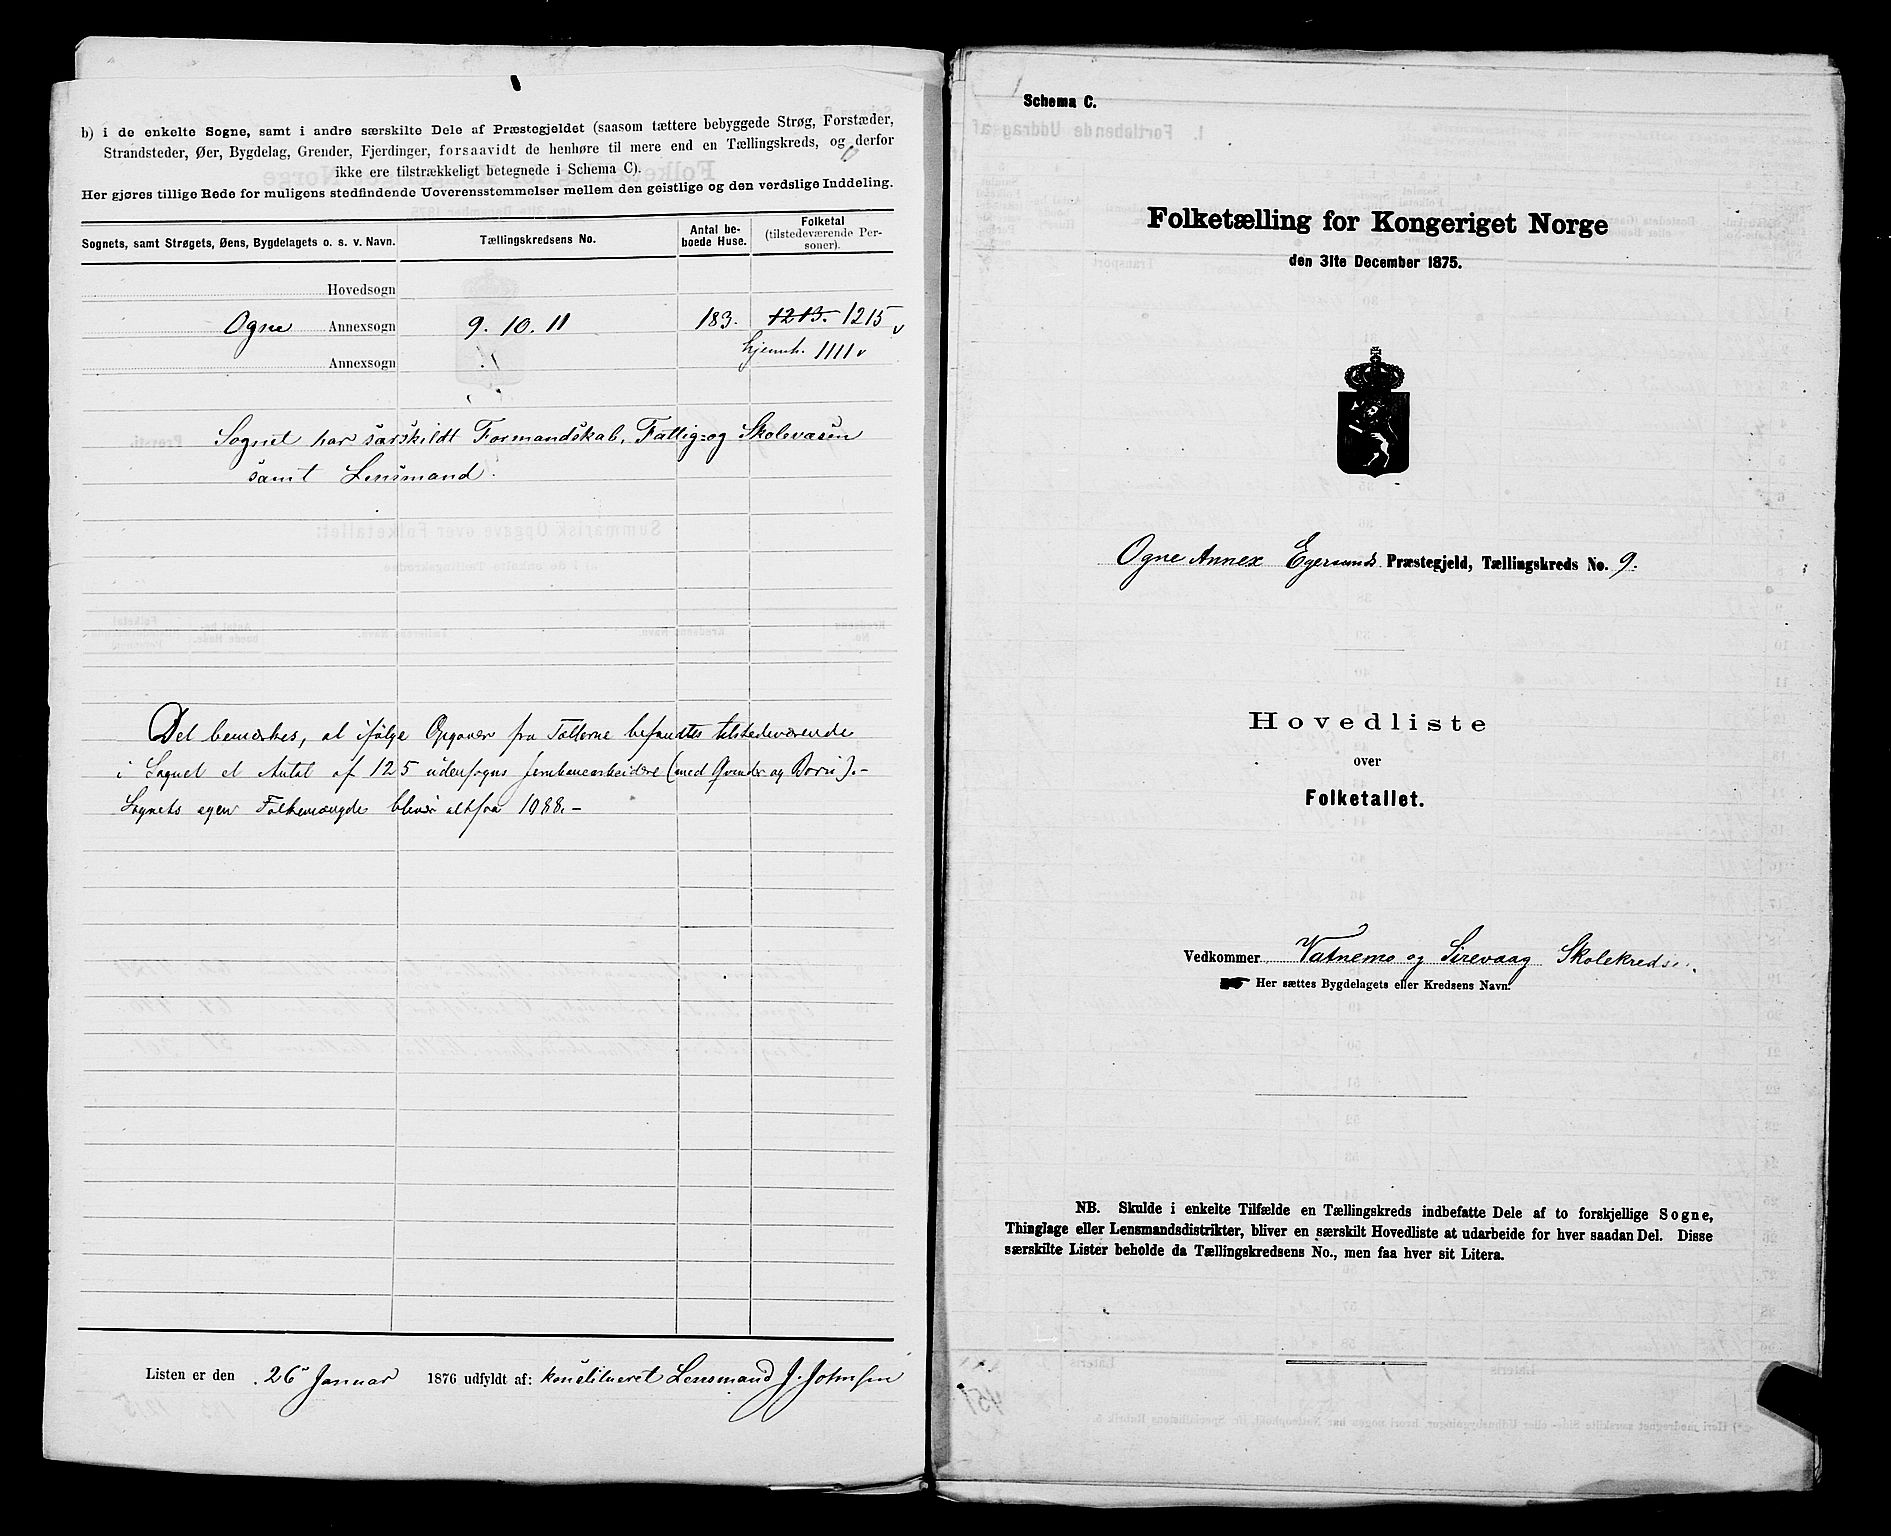 b) i de enkelte Sogne, samt i andre særskilte Dele af Præstegjeldet (saasom tættere bebyggede Strøg, Forstæder,
Strandsteder, Øer, Bygdelag, Grender, Fjerdinger, forsaavidt de henhøre til mere end en Tællingskreds, og derfor
ikke ere tilstrækkeligt betegnede i Schema C).
Her gjøres tillige Rede for muligens stedfindende Uoverensstemmelser mellem den geistlige og den verdslige Inddeling.
Sognets, samt Strøgets, Øens, Bygdelagets o. s. v. Navn. Tællingskredsens No. Antal beboede Huse. Folketal (tilstedeværende Personer).
Hovedsogn
Ogne Annexsogn 9. 10. 11 183. 1213. 1215 v
Annexsogn hjemh. 1111 v
Sognet har særskildt Formandskab, Fattig- og Skolevæsen
samt Lensmand.
Det bemærkes, at ifølge Opgaver fra Tællerne befandtes tilstedeværende
i Sognet et Antal af 125 udensogns Jernbanearbeidere (med Qvinder og Børn).-
Sognets egen Folkemængde bliver altsaa 1088.-
Listen er den 26 Januar 1876 udfyldt af: konstitueret Lensmand J. Johnsen
Schema C.
Folketælling for Kongeriget Norge
den 31te December 1875.
Ogne Annex Egersunds Præstegjeld, Tællingskreds No. 9.
Hovedliste
over
Folketallet.
Vedkommer Vatnemo og Sirevaag Skolekredse.
Her sættes Bygdelagets eller Kredsens Navn.
NB. Skulde i enkelte Tilfælde en Tællingskreds indbefatte Dele af to forskjellige Sogne,
Thinglage eller Lensmandsdistrikter, bliver en særskilt Hovedliste at udarbeide for hver saadan Del. Disse
særskilte Lister beholde da Tællingskredsens No., men faa hver sit Litera.